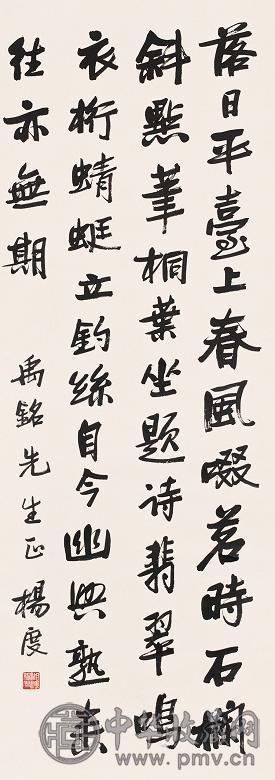 落日平臺上春風啜茗時石闌
斜點筆桐葉坐題诗翡翠鳴
衣桁蜻蜓立釣絲自今幽興熟來
往亦無期
禹銘先生正 楊度
中华收藏网
www.pmv.cn